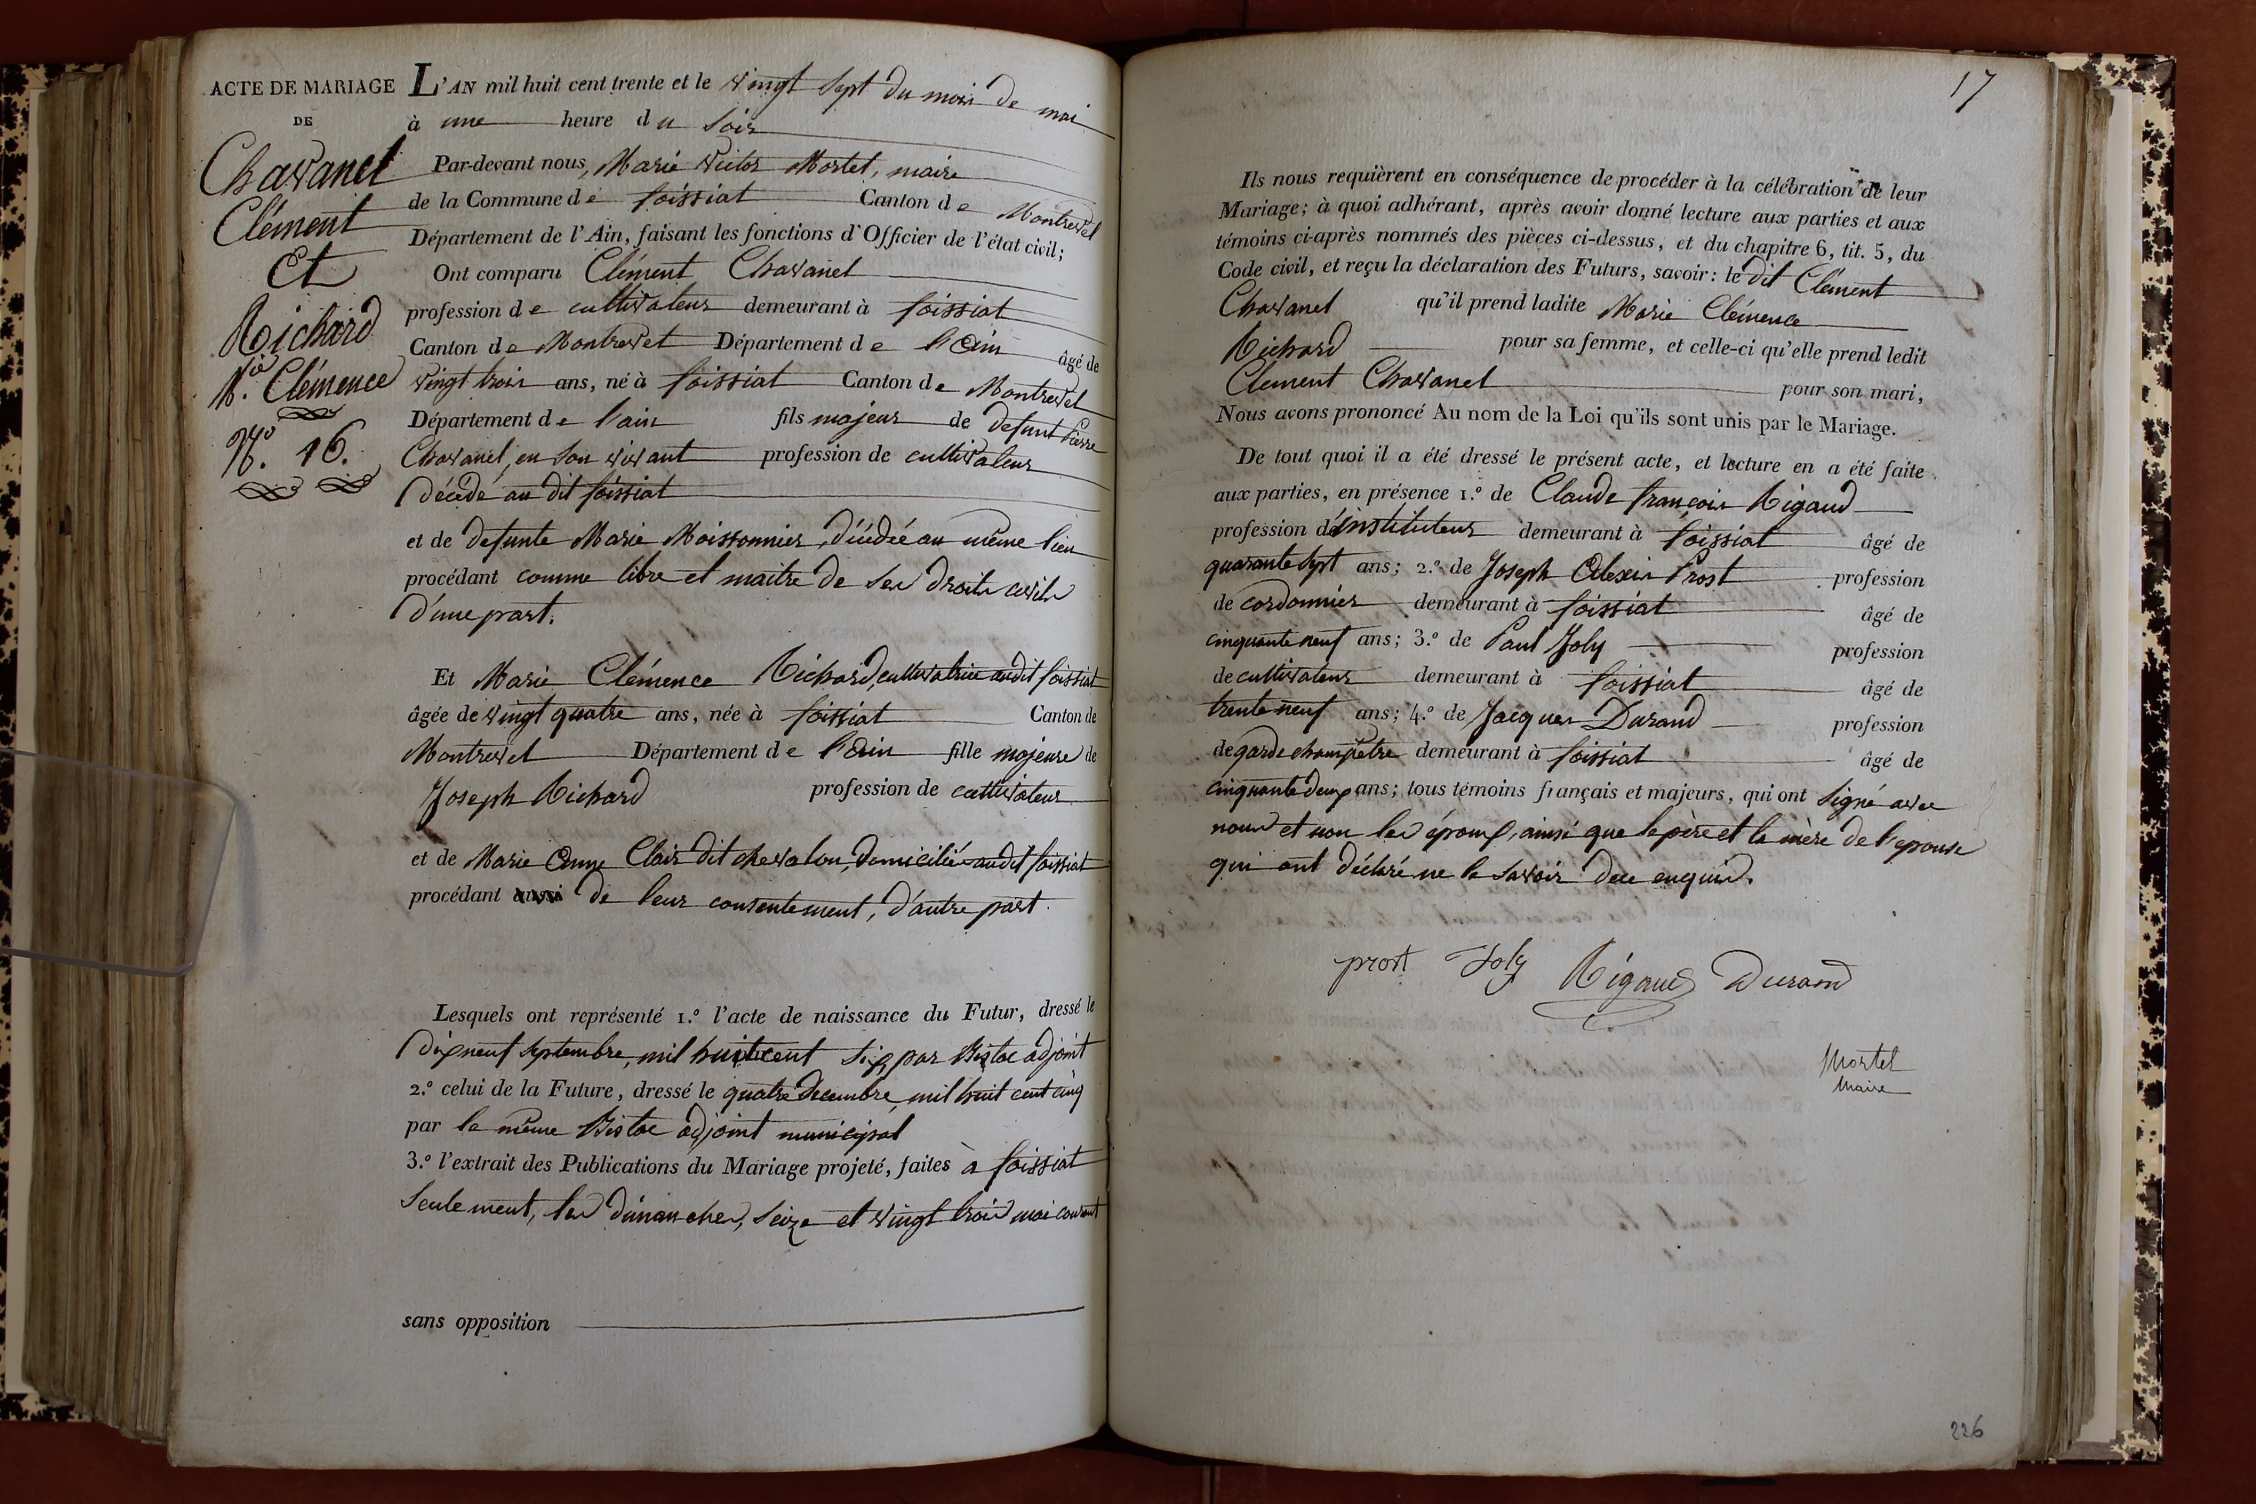 ACTE DE MARIAGE
DE
Chavanel
Clément
Et
Richard
M.ie Clémence
N.o 16.
L'AN mil huit cent trente et le vingt sept du mois de mai
à une heure du soir
Par-devant nous, Marie Victor Mortel, maire
de la Commune de foissiat Canton de Montrevel
Département de l'Ain, faisant les fonctions d'Officier de l'état civil;
Ont comparu Clément Chavanel
profession de cultivateur demeurant à foissiat
Canton de Montrevel Département de l'Ain âgé de
vingt trois ans, né à foissiat Canton de Montrevel
Département de l'ain fils majeur de defunt Pierre
Chavanel, en son vivant profession de cultivateur
décédé au dit foissiat
et de defunte Marie Moissonnier, décédée au même lieu
procédant comme libre et maitre de ses droits civils
d'une part.
Et Marie Clémence Richard, cultivatrice audit foissiat
âgée de vingt quatre ans, née à foissiat Canton de
Montrevel Département de l'Ain fille majeure de
Joseph Richard profession de cultivateur
et de Marie Anne Clair dit chevalon, domiciliés audit foissiat
procédant aussi de leur consentement, d'autre part.
Lesquels ont représenté 1.º l'acte de naissance du Futur, dressé le
dix neuf septembre, mil huit cent six, par Bistac adjoint
2.º celui de la Future, dressé le quatre decembre, mil huit cent cinq
par le même Bistac adjoint municipal
3.º l'extrait des Publications du Mariage projeté, faites à foissiat
seulement, les dimanches, seize et vingt trois mai courant
sans opposition
17
Ils nous requièrent en conséquence de procéder à la célébration de leur
Mariage; à quoi adhérant, après avoir donné lecture aux parties et aux
témoins ci-après nommés des pièces ci-dessus, et du chapitre 6, tit. 5, du
Code civil, et reçu la déclaration des Futurs, savoir: le dit Clément
Chavanel qu'il prend ladite Marie Clémence
Richard pour sa femme, et celle-ci qu'elle prend ledit
Clement Chavanel pour son mari,
Nous avons prononcé Au nom de la Loi qu'ils sont unis par le Mariage.
De tout quoi il a été dressé le présent acte, et lecture en a été faite
aux parties, en présence 1.º de Claude françois Rigaud
profession d'instituteur demeurant à foissiat âgé de
quarante sept ans; 2.º de Joseph Alexis Prost profession
de cordonnier demeurant à foissiat âgé de
cinquante neuf ans; 3.º de Paul Joly profession
de cultivateur demeurant à foissiat âgé de
trente neuf ans; 4.º de Jacques Durand profession
de garde champêtre demeurant à foissiat âgé de
cinquante deux ans; tous témoins français et majeurs, qui ont signé avec
nous et non les époux, ainsi que le père et la mère de l'epouse
qui ont déclaré ne le savoir de ce enquis.
prost Joly Rigaud Durand
Mortel
Maire
226